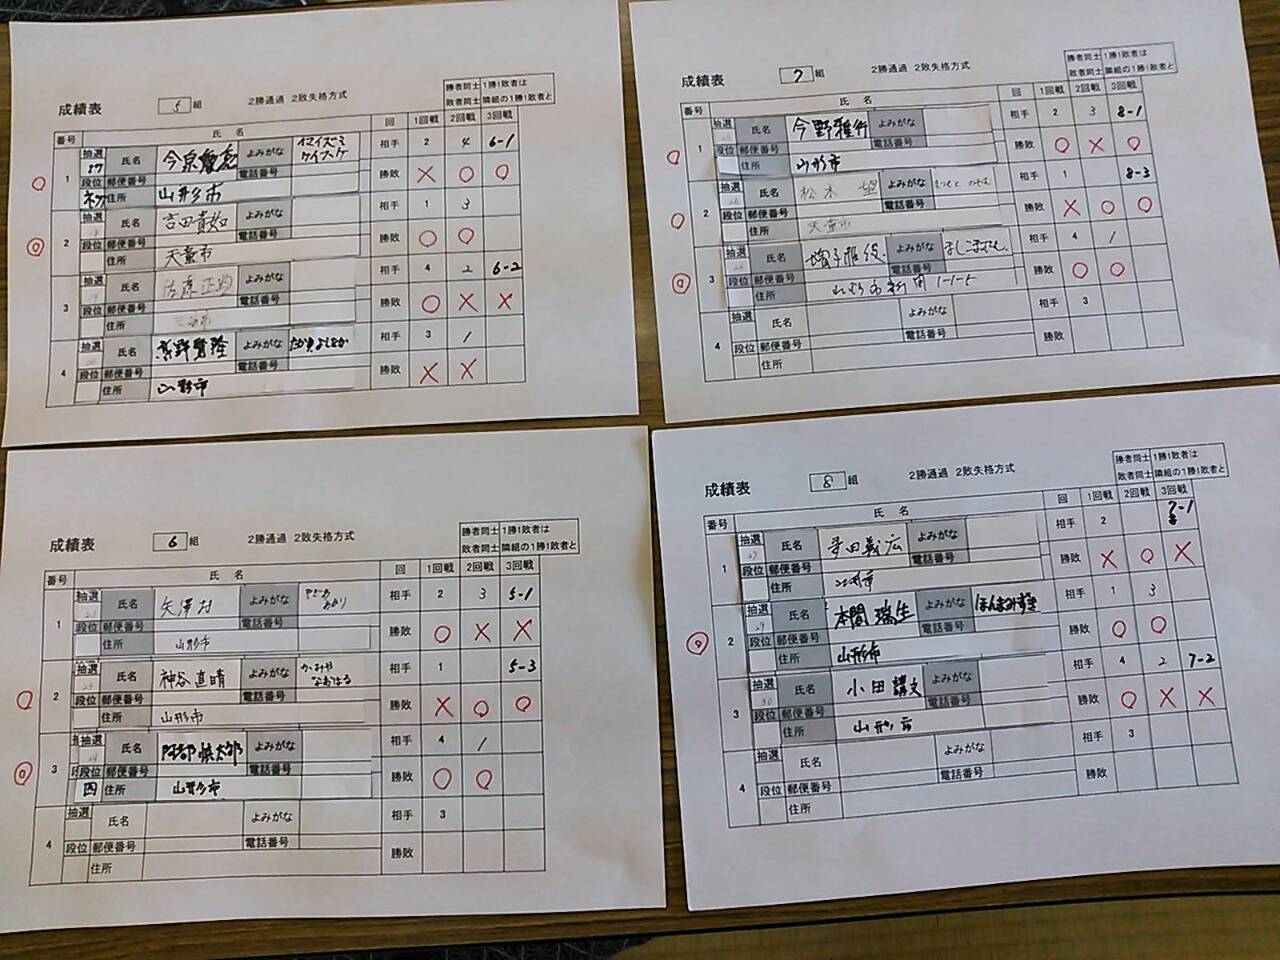 成績表 5 組 2勝通過 2敗失格方式
勝者同士 1勝1敗者は
敗者同士 隣組の1勝1敗者と
番号 氏名 回 1回戦 2回戦 3回戦
1 抽選 17 氏名 よみがな イマイズミ ケイスケ 相手 2 4 6-1
段位 郵便番号 電話番号
住所 山形市 勝敗 × ○ ○
2 抽選 氏名 吉田貴如 よみがな 相手 1 3
段位 郵便番号 電話番号
住所 天童市 勝敗 ○ ○
3 抽選 氏名 よみがな 相手 4 2 6-2
段位 郵便番号 電話番号
住所 天童市 勝敗 ○ × ×
4 抽選 氏名 よみがな 相手 3 1
段位 郵便番号 電話番号
住所 山形市 勝敗 × ×
成績表 7 組 2勝通過 2敗失格方式
勝者同士 1勝1敗者は
敗者同士 隣組の1勝1敗者と
番号 氏名 回 1回戦 2回戦 3回戦
1 抽選 氏名 今野雅行 よみがな 相手 2 3 8-1
段位 郵便番号 電話番号
住所 山形市 勝敗 ○ × ○
2 抽選 氏名 松本 望 よみがな 相手 1 8-3
段位 郵便番号 電話番号
住所 天童市 勝敗 × ○ ○
3 抽選 氏名 よみがな ましこまさとし 相手 4 1
段位 郵便番号 電話番号
住所 1-1-5 勝敗 ○ ○
4 抽選 氏名 よみがな 相手 3
段位 郵便番号 電話番号
住所 勝敗
成績表 6 組 2勝通過 2敗失格方式
勝者同士 1勝1敗者は
敗者同士 隣組の1勝1敗者と
番号 氏名 回 1回戦 2回戦 3回戦
1 抽選 氏名 矢澤村 よみがな 相手 2 3 5-1
段位 郵便番号 電話番号
住所 山形市 勝敗 ○ × ×
2 抽選 氏名 神谷直晴 よみがな かみや なおはる 相手 1 5-3
段位 郵便番号 電話番号
住所 山形市 勝敗 × ○ ○
3 抽選 氏名 阿部慎太郎 よみがな 相手 4 1
段位 四 郵便番号 電話番号
住所 山形市 勝敗 ○ ○
4 抽選 氏名 よみがな 相手 3
段位 郵便番号 電話番号
住所 勝敗
成績表 8 組 2勝通過 2敗失格方式
勝者同士 1勝1敗者は
敗者同士 隣組の1勝1敗者と
番号 氏名 回 1回戦 2回戦 3回戦
1 抽選 27 氏名 よみがな 相手 2 7-1
段位 郵便番号 電話番号
住所 山形市 勝敗 × ○ ×
2 抽選 29 氏名 本間瑞生 よみがな ほんまみずき 相手 1 3
段位 郵便番号 電話番号
住所 山形市 勝敗 ○ ○
3 抽選 30 氏名 小田講文 よみがな 相手 4 2 7-2
段位 郵便番号 電話番号
住所 山形市 勝敗 ○ × ×
4 抽選 氏名 よみがな 相手 3
段位 郵便番号 電話番号
住所 勝敗